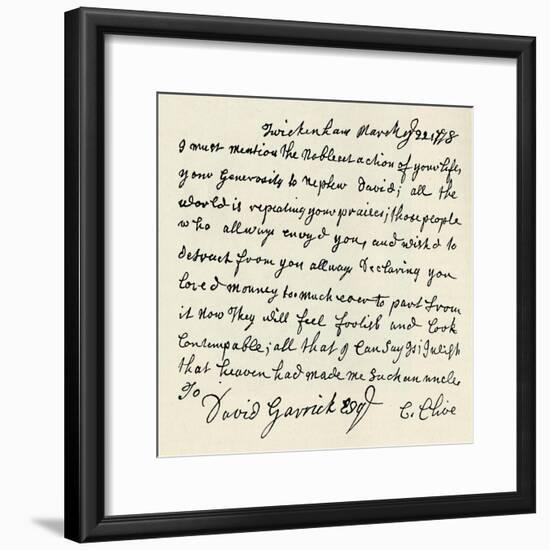 Twickenham March ye 22 1778
I must mention the Noblest action of your life,
your generosity to Nephew David; all the
world is repeating your praises; those people
who allways envyd you, and wishd to
detract from you allways Declaring you
loved mouney too much ever to part from
it Now They will feel foolish and look
Contempable; all that I Can Say Is; I wish
that heaven had made me Such an uncle
To
David Garrick Esqr C. Clive